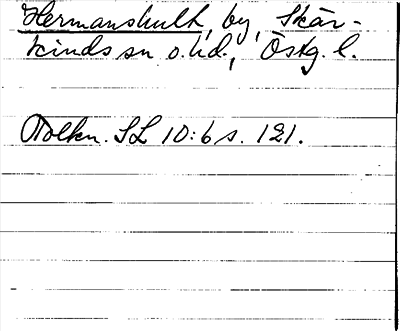 Hermanshult, by, Skär-
kinds sn o. hd., Östg. l.
Tolkn. SL 10:6 s. 121.